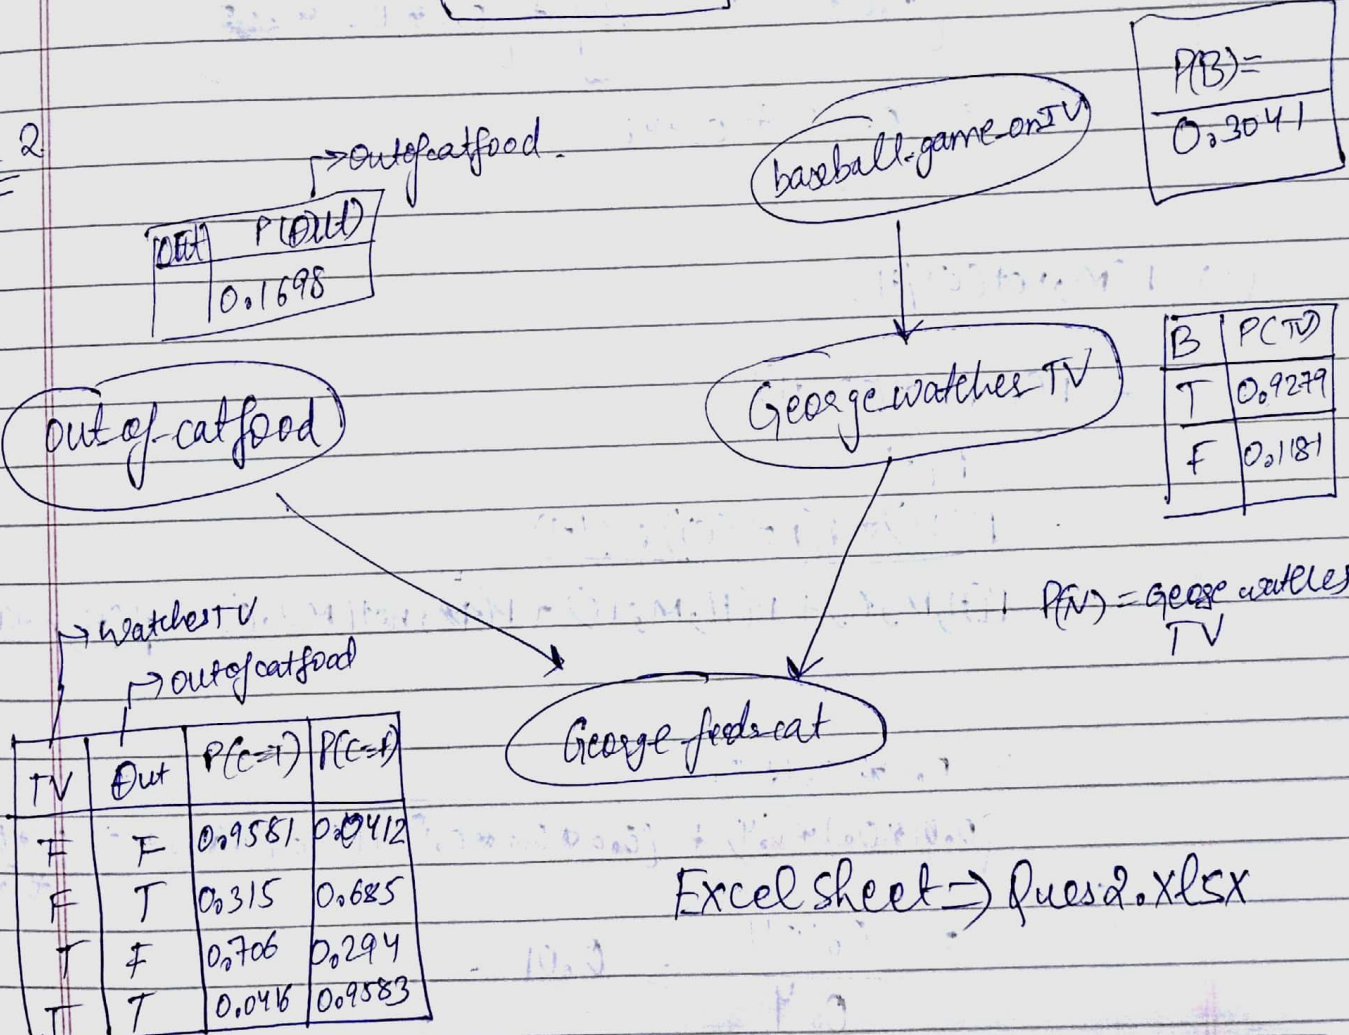 2
outofcatfood.
Out P(Out)
0.1698
baseball-game-onTV
P(B)=
0.3041
out of-catfood
George watches TV
B P(TV)
T 0.9279
F 0.1181
P(N) = George watches
TV
watchesTV
outofcatfood
TV Out P(C=T) P(C=F)
F F 0.9581 0.0412
F T 0.315 0.685
T F 0.706 0.294
T T 0.0416 0.9583
George-feeds-cat
Excel sheet => Ques2.xlsx